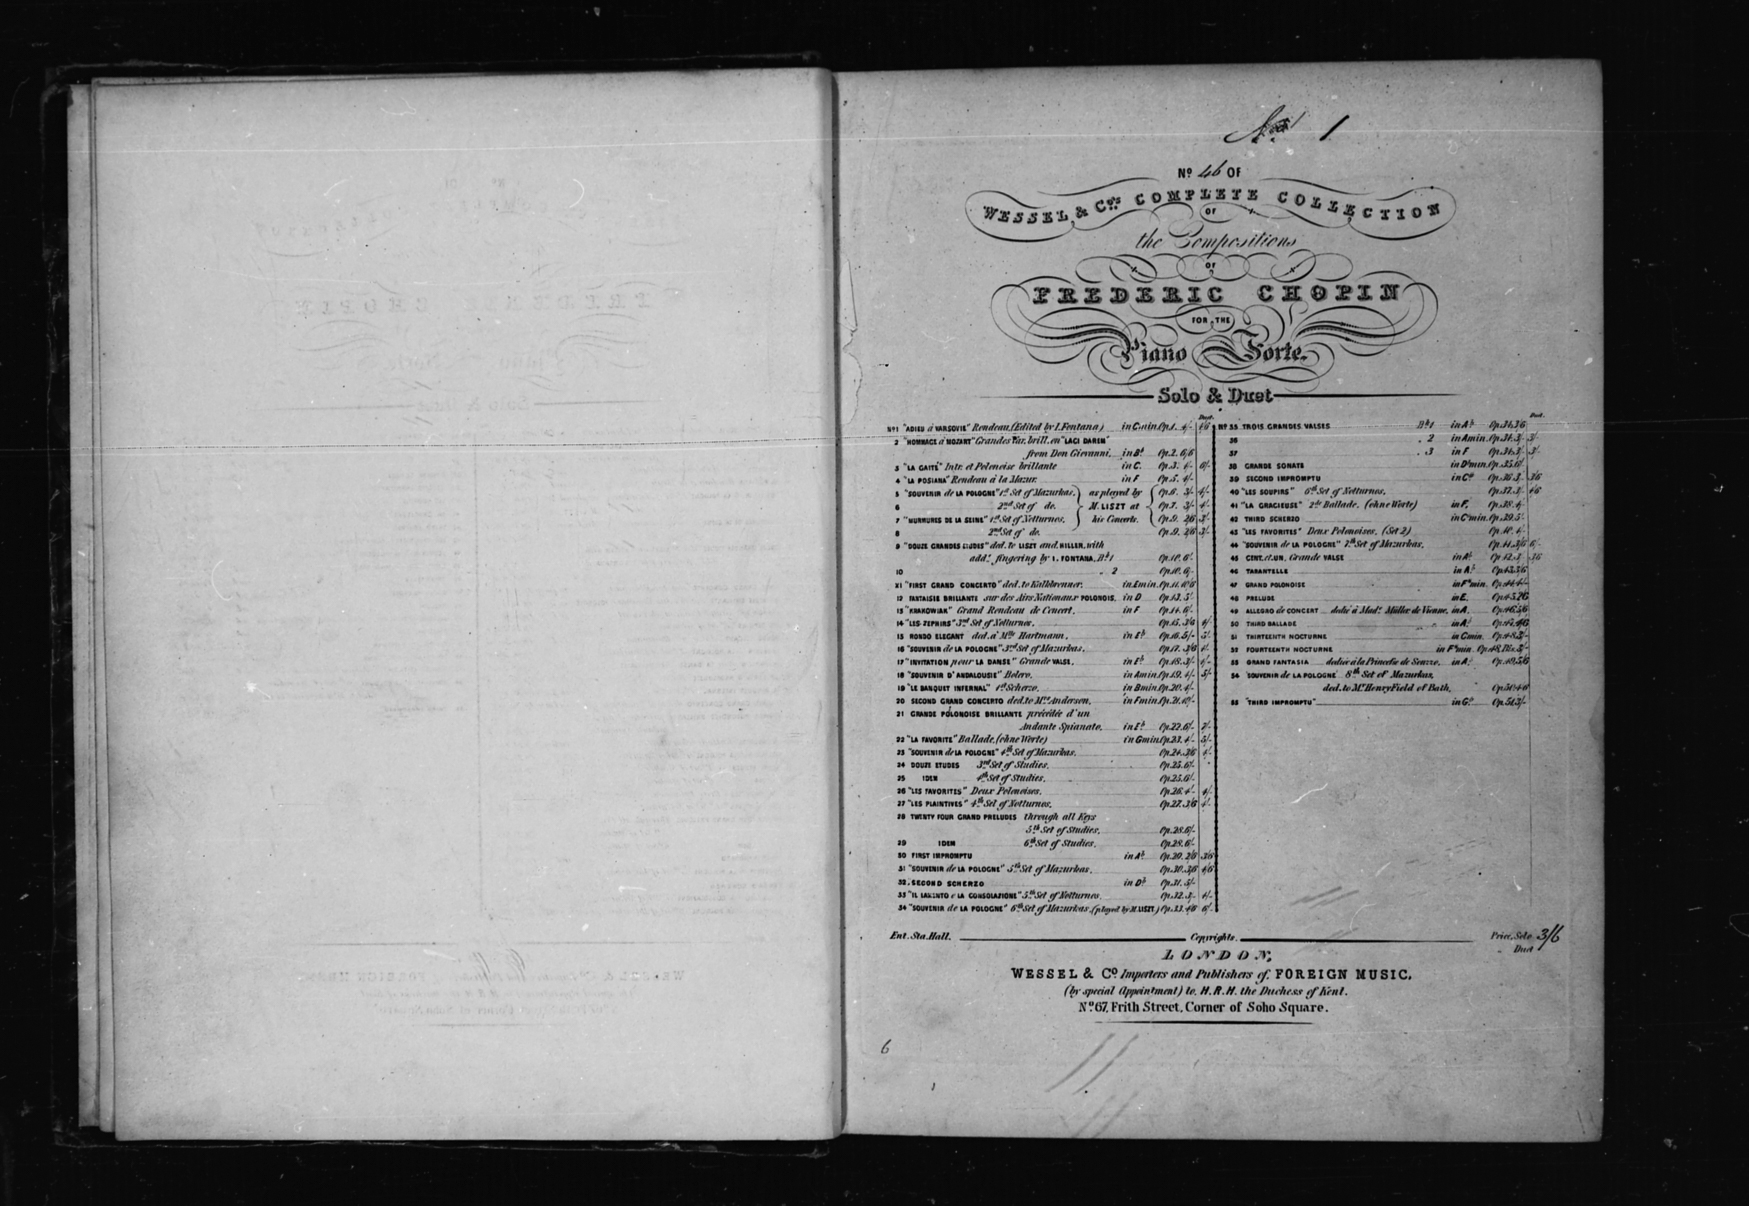 No. 1
No. 46 OF
WESSEL & Co's COMPLETE COLLECTION
OF
the Compositions
OF
FREDERIC CHOPIN
FOR THE
Piano Forte.
Solo & Duet
Duet.
No 1 "ADIEU à VARSOVIE" Rondeau, (Edited by I. Fontana) in C min. Op. 1. 4/- 4/6
2 "HOMMAGE à MOZART" Grandes Var. brill. on "LACI DAREM"
from Don Giovanni, in Bb Op. 2. 6/6
3 "LA GAITÉ" Intr. et Polonoise brillante in C. Op. 3. 4/- 6/-
4 "LA POSIANA" Rondeau à la Mazur. in F Op. 5. 4/-
5 "SOUVENIR de LA POLOGNE" 1st Set of Mazurkas. as played by Op. 6. 3/- 4/-
6 2nd Set of do. M. LISZT at Op. 7. 3/- 4/-
7 "MURMURES DE LA SEINE" 1st Set of Notturnos. his Concerts. Op. 9. 2/6 3/-
8 2nd Set of do. Op. 9. 2/6 3/-
9 "DOUZE GRANDES ETUDES" ded. to LISZT and HILLER, with
addl. fingering by I. FONTANA, Bk 1 Op. 10. 6/-
10 . 2 Op. 10. 6/-
11 "FIRST GRAND CONCERTO" ded. to Kalkbrenner. in E min. Op. 11. 10/6
12 FANTAISIE BRILLANTE sur des Airs Nationaux POLONOIS. in D Op. 13. 5/-
13 "KRAKOWIAK" Grand Rondeau de Concert. in F Op. 14. 6/-
14 "LES ZEPHIRS" 3rd Set of Notturnos. Op. 15. 3/6 4/-
15 RONDO ELEGANT ded. à Mlle Hartmann. in Eb Op. 16. 5/- 5/-
16 "SOUVENIR de LA POLOGNE" 3rd Set of Mazurkas. Op. 17. 3/6 4/-
17 "INVITATION pour LA DANSE" Grande VALSE. in Eb Op. 18. 3/- 4/-
18 "SOUVENIR D'ANDALOUSIE" Bolero. in A min. Op. 19. 4/- 5/-
19 "LE BANQUET INFERNAL" 1st Scherzo. in B min. Op. 20. 4/-
20 SECOND GRAND CONCERTO ded. to Mrs Anderson. in F min. Op. 21. 10/-
21 GRANDE POLONOISE BRILLANTE précédée d'un
Andante Spianato. in Eb Op. 22. 6/-
22 "LA FAVORITE" Ballade. (ohne Worte) in G min. Op. 23. 4/- 5/-
23 "SOUVENIR de LA POLOGNE" 4th Set of Mazurkas. Op. 24. 3/6 4/-
24 DOUZE ETUDES 3rd Set of Studies. Op. 25. 6/-
25 IDEM 4th Set of Studies. Op. 25. 6/-
26 "LES FAVORITES" Deux Polonoises. Op. 26. 4/- 4/-
27 "LES PLAINTIVES" 4th Set of Notturnos. Op. 27. 3/6 4/-
28 TWENTY FOUR GRAND PRELUDES through all Keys
5th Set of Studies. Op. 28. 6/-
29 IDEM 6th Set of Studies. Op. 28. 6/-
30 FIRST IMPROMPTU in Ab Op. 29. 2/6 3/6
31 "SOUVENIR de LA POLOGNE" 5th Set of Mazurkas. Op. 30. 3/6 4/6
32. SECOND SCHERZO in Db Op. 31. 5/-
33 "IL LAMENTO e LA CONSOLAZIONE" 5th Set of Notturnos. Op. 32. 3/- 4/-
34 "SOUVENIR de LA POLOGNE" 6th Set of Mazurkas, (played by M. LISZT) Op. 33. 4/6 6/-
Duet.
No 35 TROIS GRANDES VALSES Bk 1 in Ab Op. 34. 3/6
36 . 2 in A min. Op. 34. 3/- 3/-
37 . 3 in F Op. 34. 3/- 3/-
38 GRANDE SONATE in Db min. Op. 35. 6/-
39 SECOND IMPROMPTU in G Op. 36. 3/- 3/6
40 "LES SOUPIRS" 6th Set of Notturnos. Op. 37. 3/- 4/6
41 "LA GRACIEUSE" 2de Ballade. (ohne Worte) in F, Op. 38. 4/-
42 THIRD SCHERZO in C# min. Op. 39. 5/-
43 "LES FAVORITES" Deux Polonoises. (Set 2) Op. 40. 4/-
44 "SOUVENIR de LA POLOGNE" 7th Set of Mazurkas. Op. 41. 3/6 6/-
45 CENT. et. UN. Grande VALSE in Ab Op. 42. 3/- 3/6
46 TARANTELLE in Ab Op. 43. 3/6
47 GRAND POLONOISE in F# min. Op. 44. 4/-
48 PRELUDE in E. Op. 45. 2/6
49 ALLEGRO de CONCERT dedié à Madle. Müller de Vienne, in A. Op. 46. 5/6
50 THIRD BALLADE in Ab Op. 47. 4/6
51 THIRTEENTH NOCTURNE in C min. Op. 48. 3/-
52 FOURTEENTH NOCTURNE in F# min. Op. 48. Bis. 3/-
53 GRAND FANTASIA dediée à la Princesse de Souzzo. in Ab Op. 49. 5/6
54 "SOUVENIR de LA POLOGNE" 8th Set of Mazurkas.
ded. to Mr. Henry Field of Bath. Op. 50. 4/6
55 "THIRD IMPROMPTU" in Gb Op. 51. 3/-
Ent. Sta. Hall. Copyrights. Price, Solo 3/6
Duet
LONDON,
WESSEL & Co Importers and Publishers of FOREIGN MUSIC,
(by special Appointment) to H.R.H. the Duchess of Kent.
No 67, Frith Street, Corner of Soho Square.
6